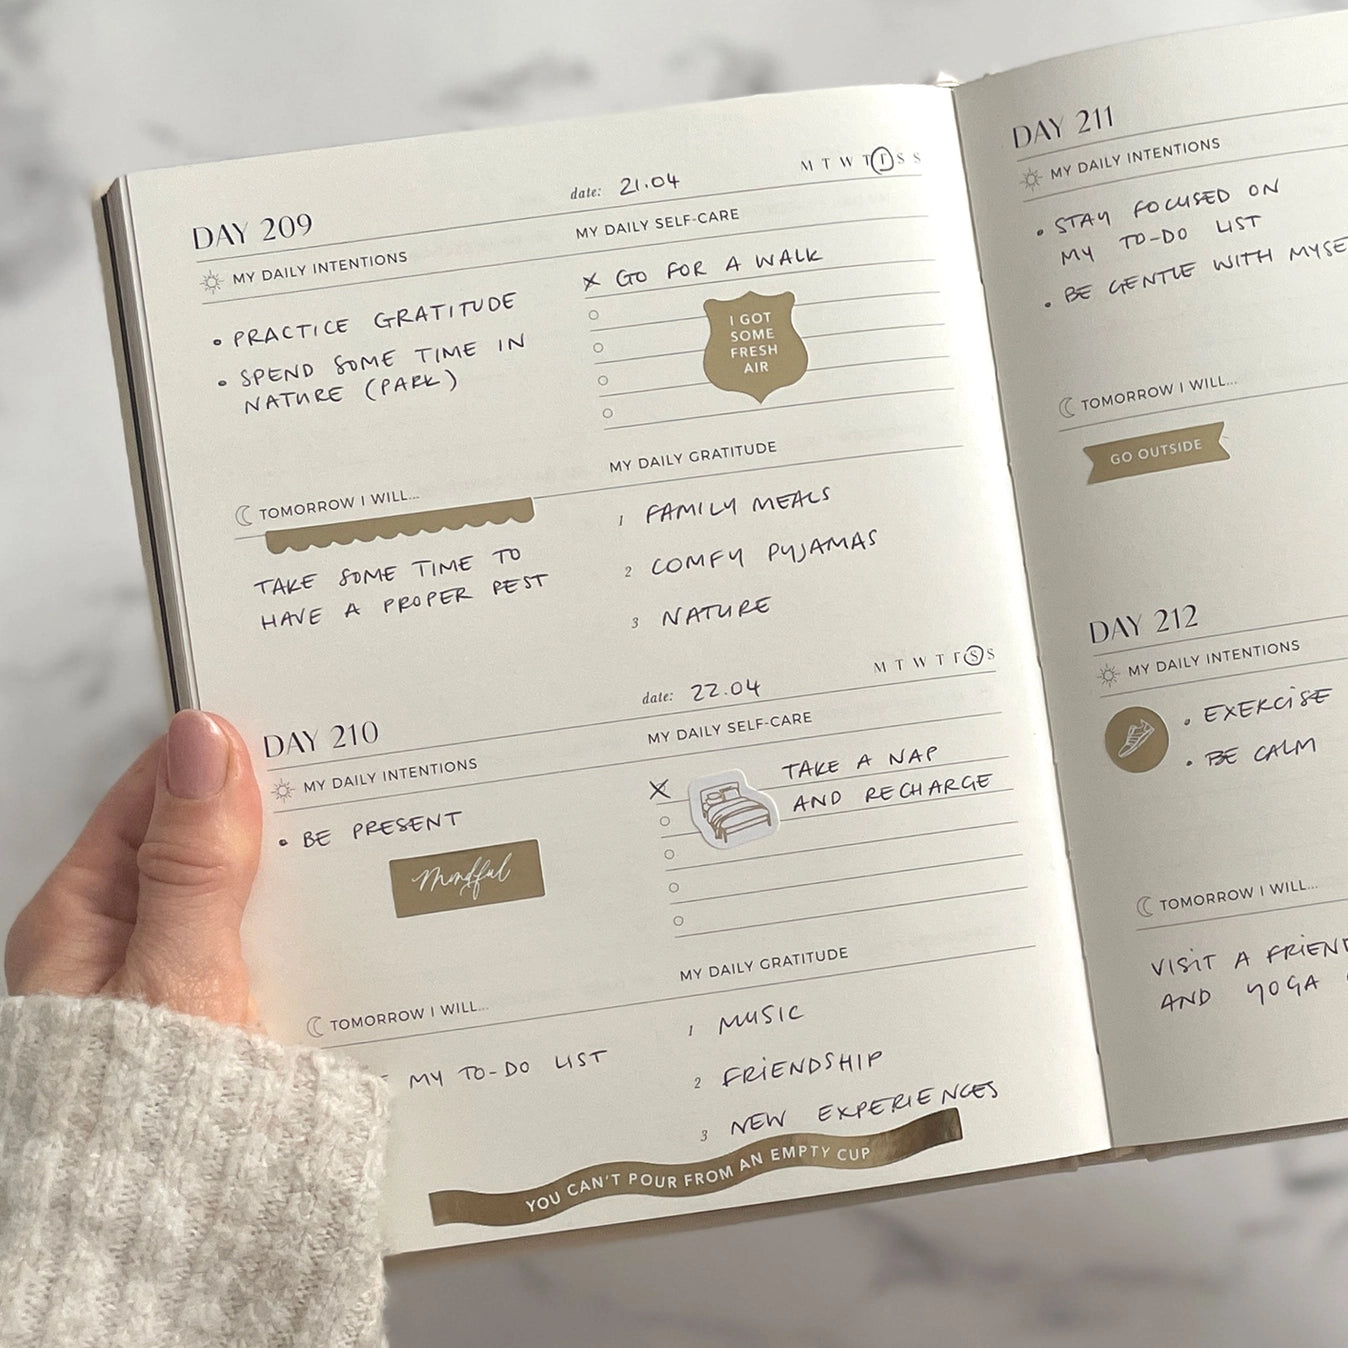 DAY 209
date: 21.04
M T W T F S S
MY DAILY INTENTIONS
• PRACTICE GRATITUDE
• SPEND SOME TIME IN
NATURE (PARK)
MY DAILY SELF-CARE
X GO FOR A WALK
I GOT
SOME
FRESH
AIR
TOMORROW I WILL...
TAKE SOME TIME TO
HAVE A PROPER REST
MY DAILY GRATITUDE
1 FAMILY MEALS
2 COMFY PYJAMAS
3 NATURE
DAY 210
date: 22.04
M T W T F S S
MY DAILY INTENTIONS
• BE PRESENT
Mindful
MY DAILY SELF-CARE
X TAKE A NAP
AND RECHARGE
TOMORROW I WILL...
MY TO-DO LIST
MY DAILY GRATITUDE
1 MUSIC
2 FRIENDSHIP
3 NEW EXPERIENCES
YOU CAN'T POUR FROM AN EMPTY CUP
DAY 211
MY DAILY INTENTIONS
• STAY FOCUSED ON
MY TO-DO LIST
• BE GENTLE WITH
TOMORROW I WILL...
GO OUTSIDE
DAY 212
MY DAILY INTENTIONS
• EXERCISE
• BE CALM
TOMORROW I WILL...
VISIT A FRIEND
AND YOGA